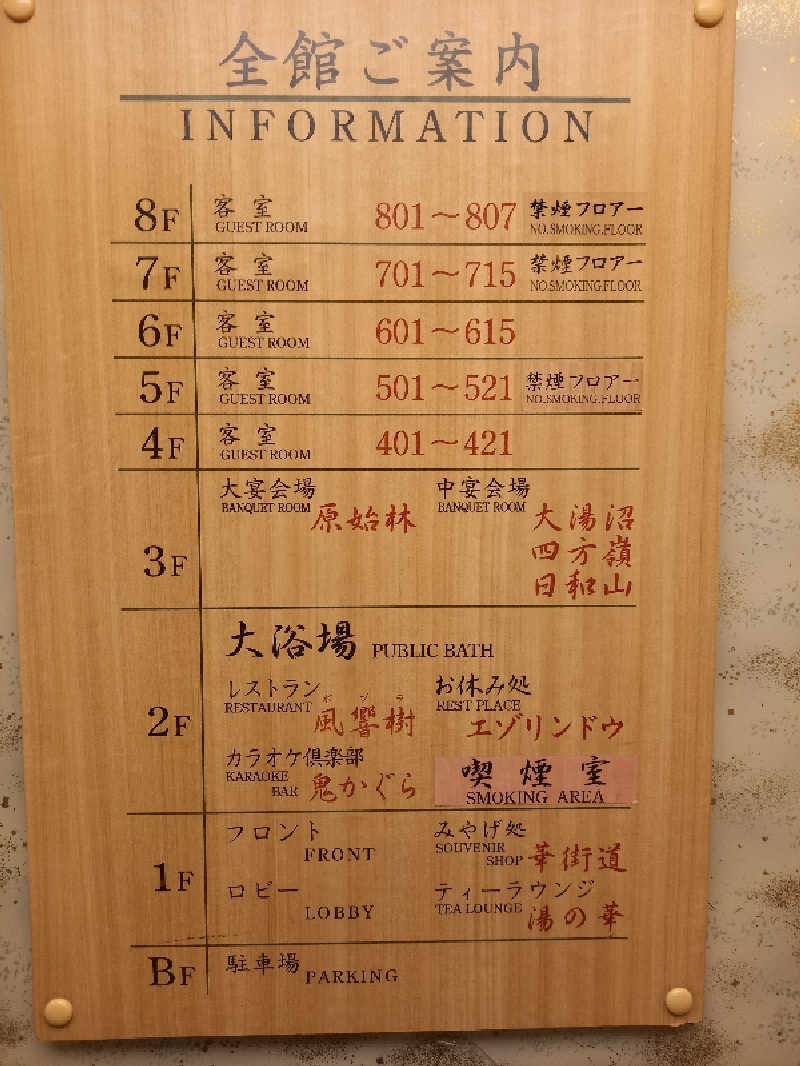 全館ご案内
INFORMATION
8F 客室 GUEST ROOM 801～807 禁煙フロアー NO.SMOKING.FLOOR
7F 客室 GUEST ROOM 701～715 禁煙フロアー NO.SMOKING.FLOOR
6F 客室 GUEST ROOM 601～615
5F 客室 GUEST ROOM 501～521 禁煙フロアー NO.SMOKING.FLOOR
4F 客室 GUEST ROOM 401～421
3F
大宴会場 BANQUET ROOM 原始林
中宴会場 BANQUET ROOM 大湯沼
四方嶺
日和山
2F
大浴場 PUBLIC BATH
レストラン RESTAURANT 風響樹
ポプラ
お休み処 REST PLACE
エゾリンドウ
カラオケ倶楽部 KARAOKE BAR 鬼かぐら
喫煙室
SMOKING AREA
1F
フロント FRONT
みやげ処 SOUVENIR SHOP 華街道
ロビー LOBBY
ティーラウンジ TEA LOUNGE 湯の華
BF 駐車場 PARKING